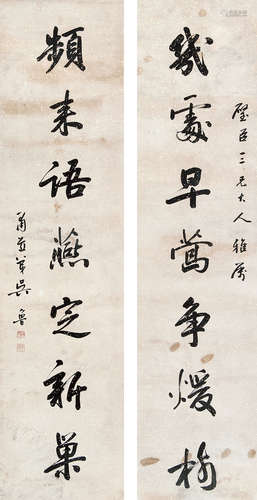 幾處早鶯爭煖樹
璧臣三兄大人雅屬
頻來語燕定新巢
肅堂弟吳魯